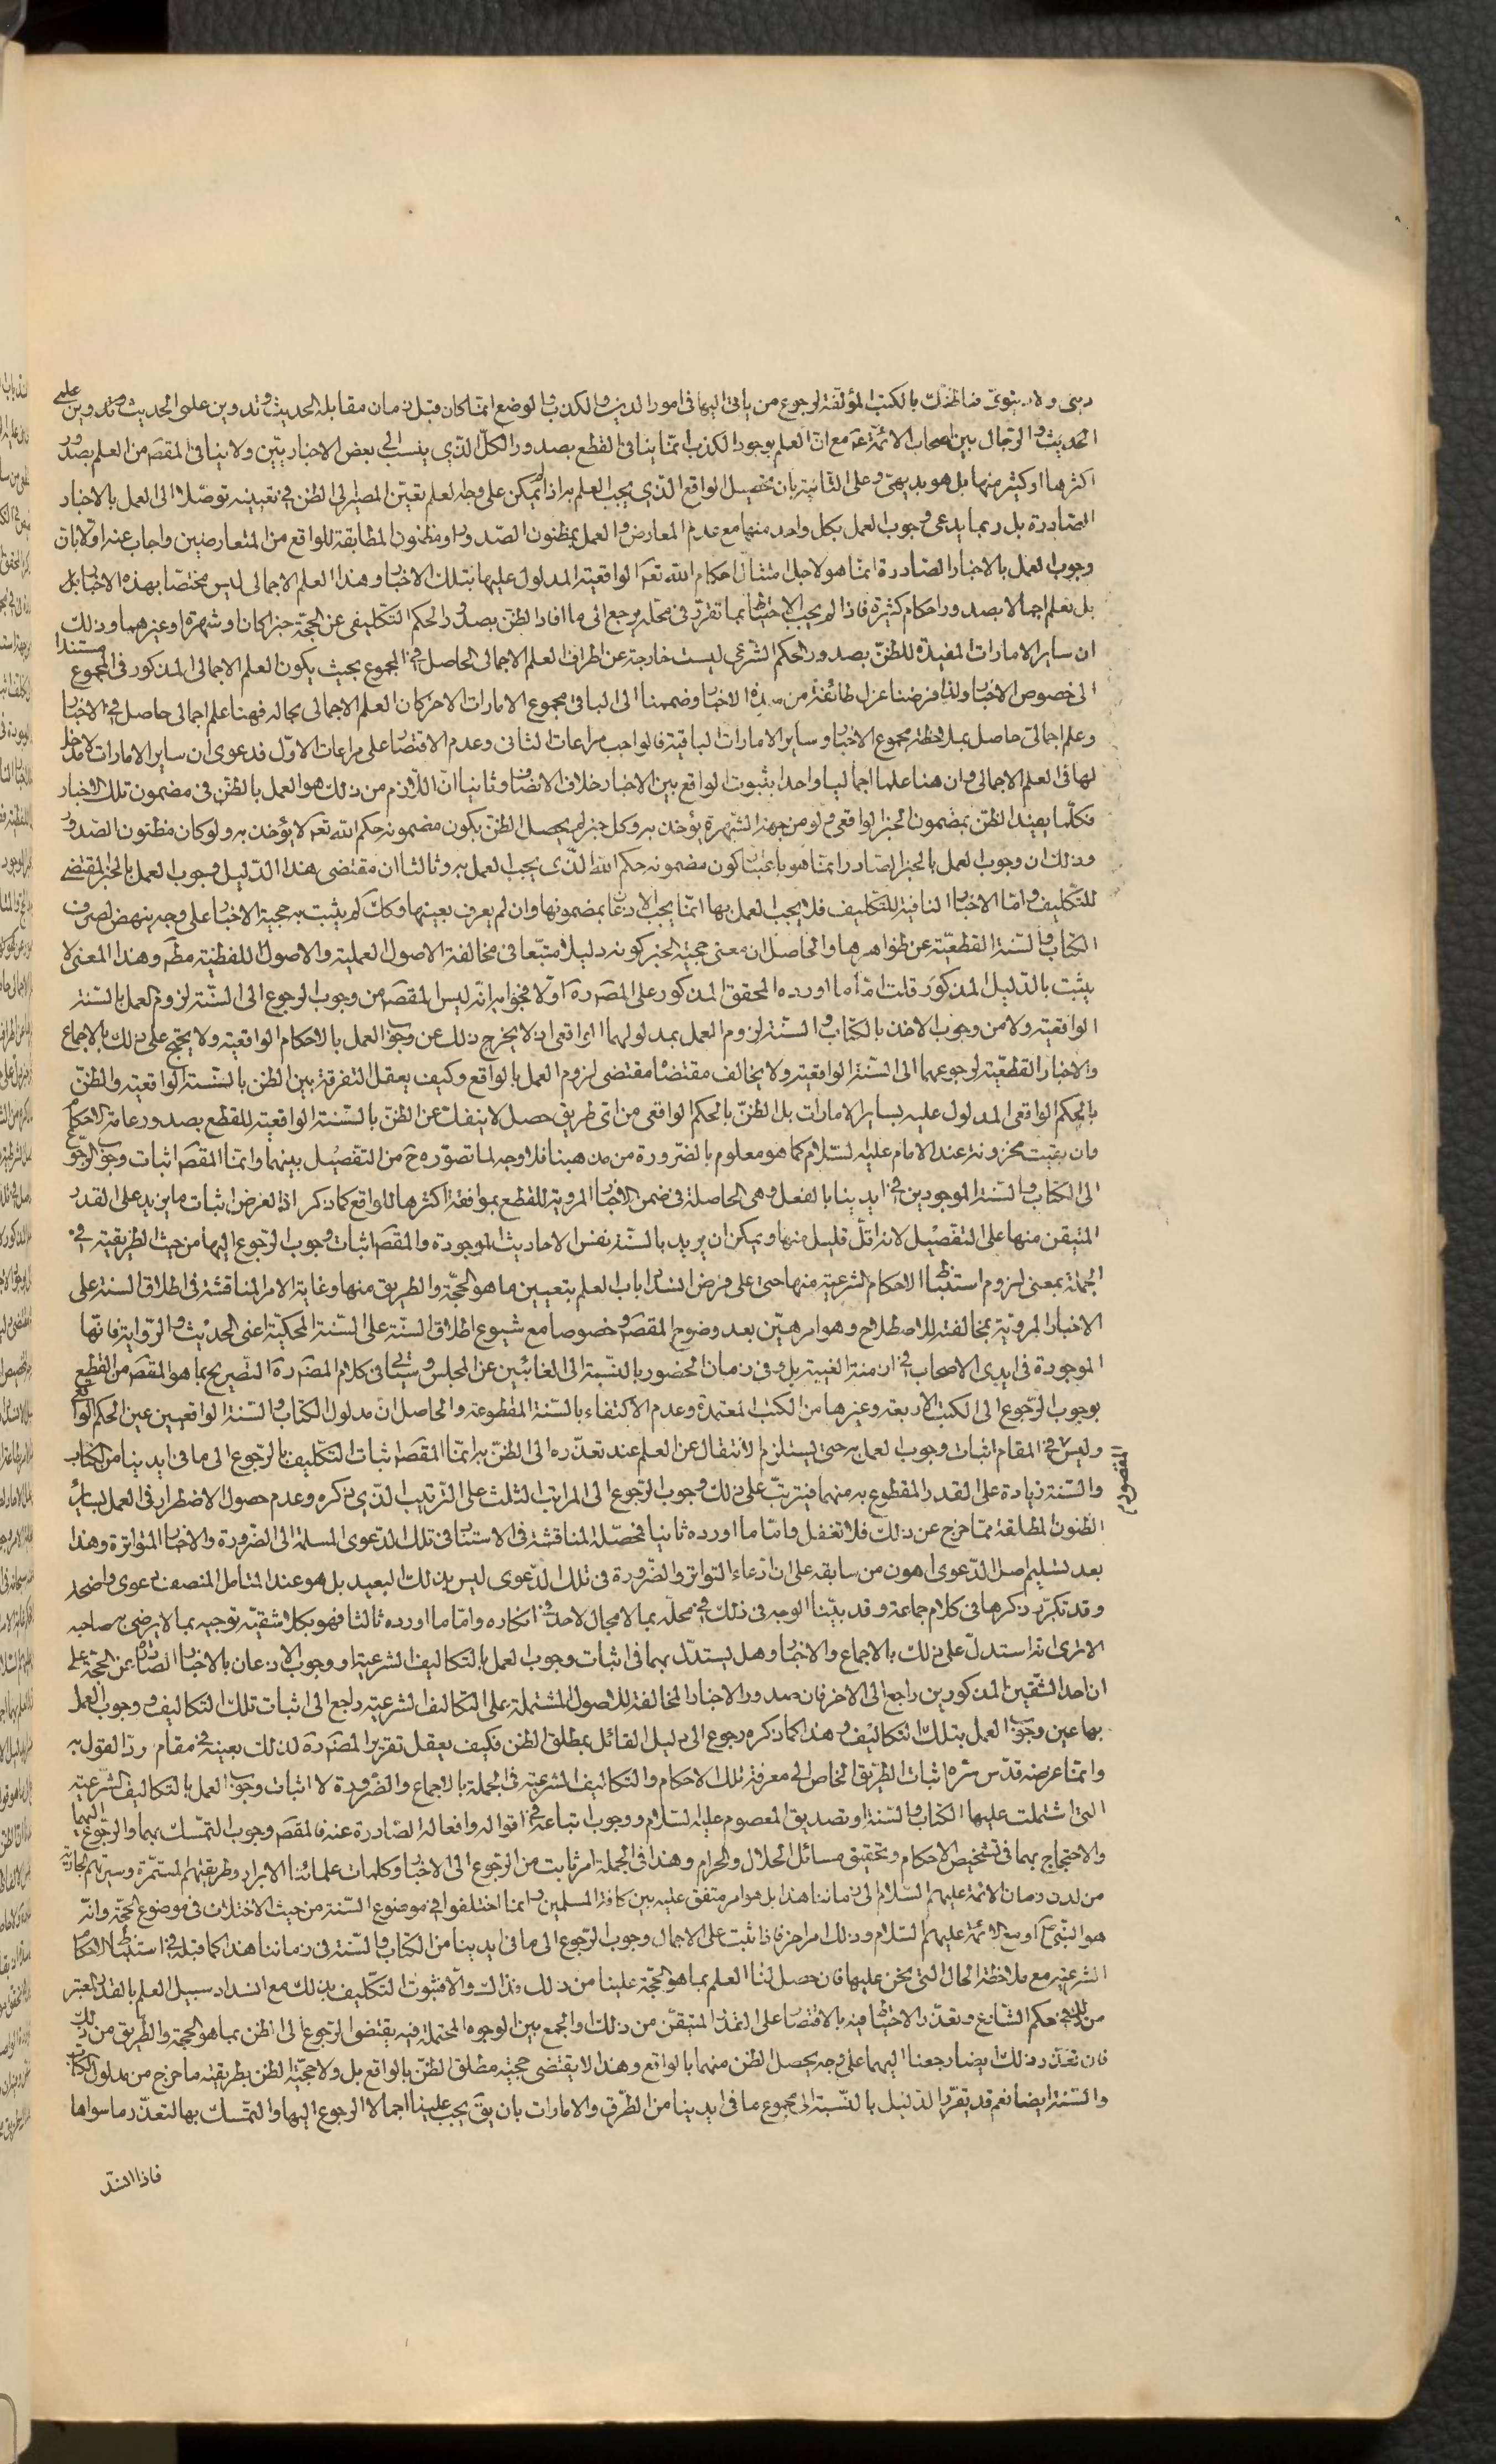 دسّى ولا بالكتب المؤلفة لرجوع من ياتى اليها فى امور الدين والكذب والوضع انما كان قبل زمان مقابلة الحديث وتدوين علمى الحديث وتدوين علمى
الحديث والرجال بين اصحاب الائمة عم مع ان العلم بوجود الكذب انما ينافى القطع بصدور الكل الذى ينسب الى بعض الاخباريين ولا ينافى المقصَ من العلم بصدور
اكثرها او كثير منها بل هو بديهىّ وعلى الثانية بان تحصيل الواقع الذى يجب العلم به اذا لم يمكن على وجه العلم تعيّن المصير الى الظن فى تعيينه توصّلا الى العمل بالاخبار
الصّادرة بل ربما يدعى وجوب العمل بكل واحد منها مع عدم المعارض والعمل بمظنون الصّدور او مظنون المطابقة للواقع من المتعارضين واجاب عنه اولا بان
وجوب العمل بالاخبار الصّادرة انما هو لاجل امتثال احكام الله تعَ الواقعية المدلول عليها بتلك الاخبار وهذا العلم الاجمالى ليس مختصّا بهذه الاخبار بل
بل نعلم اجمالا بصدور احكام كثيرة فاذا لم يجب الاحتياط بما تقرّر فى محلّه يرجع الى ما افاد الظنّ بصدور الحكم التكليفى عن الحجّة خبرا كان او شهرة او غيرهما وذلك
ان ساير الامارات المفيدة للظنّ بصدور الحكم الشرعى ليست خارجة عن اطراف العلم الاجمالى الحاصل فى المجموع بحيث يكون العلم الاجمالى المذكور فى المجموع مستندا
الى خصوص الاخبار ولذا فرضنا عزل طائفة من هذه الاخبار وضممنا الى الباقى مجموع الامارات الاخر كان العلم الاجمالى بحاله فهنا علم اجمالى حاصل فى الاخبار
وعلم اجمالى حاصل بملاحظة مجموع الاخبار وساير الامارات الباقية فالواجب مراعات الثانى وعدم الاقتصار على مراعات الاوّل فدعوى ان ساير الامارات لا مدخل
لها فى العلم الاجمالى وان هنا علما اجماليا واحدا بثبوت الواقع بين الاخبار خلاف الانصاف وثانيا انّ اللّازم من ذلك هو العمل بالظنّ فى مضمون تلك الاخبار
فكلّما يفيد الظنّ بمضمون الخبر الواقعى ولو من جهة الشّهرة يؤخذ به وكل خبر لم يحصل الظنّ بكون مضمونه حكم الله تعَ لا يؤخذ به ولو كان مظنون الصّدور
وذلك ان وجوب العمل بالخبر الصّادر انما هو باعتبار كون مضمونه حكم الله الذى يجب العمل به وثالثا ان مقتضى هذا الدّليل وجوب العمل بالخبر المقتضى
للتّكليف وامّا الاخبار النافية للتّكليف فلا يجب العمل بها انما يجب الاذعان بمضمونها وان لم يعرف بعينها وكك لم يثبت به حجية الاخبار على وجه ينهض لصرف
الكتاب والسّنة القطعيّة عن ظواهرها والحاصل ان معنى حجية الخبر كونه دليلا متبّعا فى مخالفة الاصول العملية والاصول اللفظيّة مطَ وهذا المعنى لا
يثبت بالدّليل المذكور قلت امّا ما اورده المحقق المذكور على المصَ ره اوّلا فجوابه انّه ليس المقصَ من وجوب الرجوع الى السّنة لزوم العمل بالسّنة
الواقعية ولا من وجوب الاخذ بالكتاب والسّنة لزوم العمل بمدلولهما الواقعى اذ لا يخرج ذلك عن وجوب العمل بالاحكام الواقعية ولا يحتج على ذلك بالاجماع
والاخبار القطعيّة لرجوعهما الى السّنة الواقعية ولا يخالف مقتضاه مقتضى لزوم العمل بالواقع وكيف يعقل التفرقة بين الظن بالسّنة الواقعية والظنّ
بالحكم الواقعى المدلول عليه بساير الامارات بل الظنّ بالحكم الواقعى من اى طريق حصل لا ينفك عن الظنّ بالسّنة الواقعية للقطع بصدور عامة الاحكام
وان بقيت مخزونة عند الامام عليه السّلام كما هو معلوم بالضرورة من مذهبنا فلا وجه لما تصوّره حَ من التفصيل بينهما وانما المقصَ اثبات وجوب الرجوع
الى الكتاب والسّنة الموجودين فى ايدينا بالفعل وهى الحاصلة فى ضمن الاخبار المروية للقطع بموافقة اكثرها للواقع كما ذكر اذ الغرض اثبات ما يزيد على القدر
المتيقن منها على التفصيل لانه اقلّ قليل منها ويمكن ان يريد بالسّنة نفس الاحاديث الموجودة والمقصَ اثبات وجوب الرجوع اليها من حيث الطريقية فى
الجملة بمعنى لزوم استنباط الاحكام الشرعية منها حتى على فرض انسداد باب العلم بتعيين ما هو الحجّة والطريق منها وغاية الامر المناقشة فى اطلاق السنة على
الاخبار المرويّة بمخالفته للاصطلاح وهو امر هيّن بعد وضوح المقصَ وخصوصا مع شيوع اطلاق السنّة على السّنة المحكية اعنى الحديث والرّواية فانها
الموجودة فى ايدى الاصحاب فى ازمنة الغيبة بل وفى زمان الحضور بالنّسبة الى الغائبين عن المجلس وسيأتى فى كلام المصَ ره التصريح بما هو المقصَ من القطع
بوجوب الرّجوع الى الكتب الاربعة وغيرها من الكتب المعتمدة وعدم الاكتفاء بالسّنة المقطوعة والحاصل انّ مدلول الكتاب والسّنة الواقعيين عين الحكم الواقعى
وليس فى المقام اثبات وجوب العمل به حتى يستلزم الانتقال عن العلم عند تعذّره الى الظنّ به انما المقصَ اثبات التّكليف بالرّجوع الى ما فى ايدينا من الكتاب
والسّنة زيادة على القدر المقطوع به منهما فيترتّب على ذلك وجوب الرّجوع الى المراتب الثلث على التّرتيب الذى ذكره وعدم حصول الاضطرار فى العمل بساير
الظنون المطلقة ممّا خرج عن ذلك فلا تغفل وامّا ما اورده ثانيا فمحصّله المناقشة فى الاستناد فى تلك الدّعوى المسلمة الى الضّرورة والاخبار المتواترة وهذا
بعد تسليم اصل الدّعوى اهون من سابقه على ان ادّعاء التواتر والضّرورة فى تلك الدّعوى ليس بذلك البعيد بل هو عند المتأمل المنصف دعوى واضحة
وقد تكرّر ذكرها فى كلام جماعة وقد بيّنّا الوجه فى ذلك فى محلّه بما لا مجال لاحد فى انكاره وامّا ما اورده ثالثا فهو بكلا شقيّه توجيه بما لا يرضى به صاحبه
الا ترى انّه استدلّ على ذلك بالاجماع والاخبار وهل يستدلّ بهما فى اثبات وجوب العمل بالتكاليف الشرعية او وجوب الاذعان بالاخبار الصّادرة عن الحجّة على
ان احد الشّقين المذكورين راجع الى الاخر فان صدور الاخبار المخالفة للاصول المشتملة على التكاليف الشرعية راجع الى اثبات تلك التكاليف ووجوب العمل
بها عين وجوب العمل بتلك التكاليف وهذا كما ذكره رجوع الى دليل القائل بمطلق الظن فكيف يعقل تقرير المصَ ره لذلك بعينه فى مقام ردّ القول به
وانّما غرضه قدّس سرّه اثبات الطّريق الخاص الى معرفة تلك الاحكام والتكاليف الشرعية فى الجملة بالاجماع والضّرورة لا اثبات وجوب العمل بالتكاليف الشّرعيّة
التى اشتملت عليها الكتاب والسّنة او تصديق المعصوم عليه السّلام ووجوب اتباعه فى اقواله وافعاله الصّادرة عنه فالمقصَ وجوب التمسّك بهما والرّجوع اليهما
والاحتجاج بهما فى تشخيص الاحكام وتحقيق مسائل الحلال والحرام وهذا فى الجملة امر ثابت من الرّجوع الى الاخبار وكلمات علمائنا الابرار وطريقتهم المستمّرة وسيرتهم الجارية
من لدن زمان الائمّة عليهم السّلام الى زماننا هذا بل هو امر متفق عليه بين كافة المسلمين وانما اختلفوا فى موضوع السّنة من حيث الاختلاف فى موضوع الحجّة وانّه
هو النبّى صَ او مع الائمّة عليهم السّلام وذلك امر اخر فاذا ثبت على الاجمال وجوب الرّجوع الى ما فى ايدينا من الكتاب والسّنة فى زماننا هذا كما قبله فى استنباط الاحكام
الشرعية مع ملاحظة الحال التى نحن عليها فان حصل لنا العلم بما هو الحجّة علينا من ذلك فذاك والّا فثبوت التّكليف بذلك مع انسداد سبيل العلم بالقدر المعتبر
من ذلك فى حكم الشّارع وتعذّر الاحتياط فيه بالاقتصار على القدر المتيقّن من ذلك والجمع بين الوجوه المحتملة فيه يقتضى الرجوع الى الظن بما هو الحجة والطّريق من ذلك
فان تعذّر ذلك ايضا رجعنا اليهما على وجه يحصل الظن منهما بالواقع وهذا لا يقتضى حجية مطلق الظنّ بالواقع بل ولا حجيّة الظن بطريقية ما خرج من مدلول الكتاب
والسّنة ايضا نعم قد يقرّر الدّليل بالنّسبة الى مجموع ما فى ايدينا من الطّرق والامارات بان يقَ يجب علينا اجمالا الرجوع اليها والتمسّك بها لتعذّر ما سواها
فاذا انسدّ